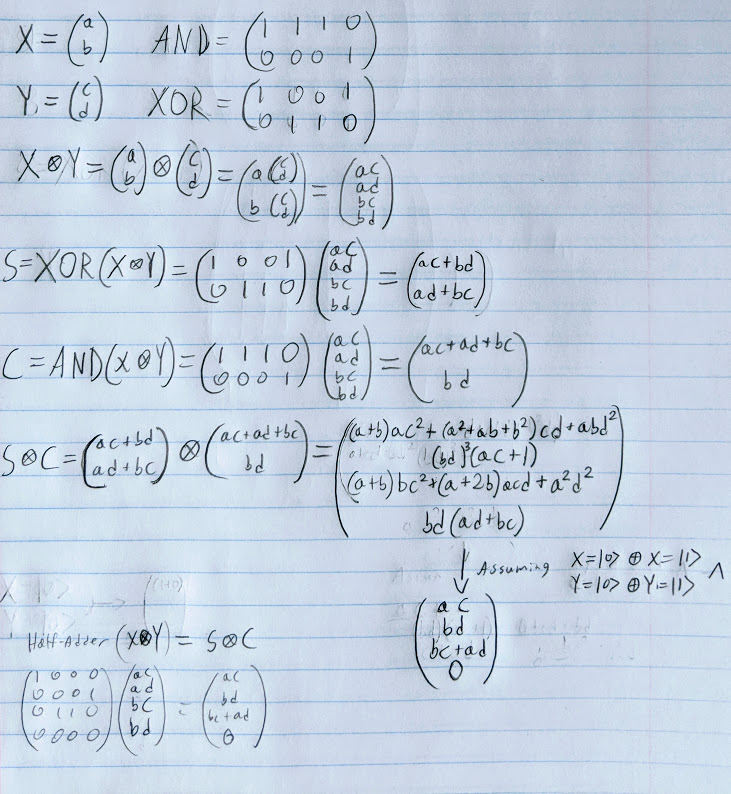 X = (a b)   AND = (1 1 1 0 / 0 0 0 1)
Y = (c d)   XOR = (1 0 0 1 / 0 1 1 0)
X⊗Y = (a b) ⊗ (c d) = (a(c d) / b(c d)) = (ac / ad / bc / bd)
S = XOR(X⊗Y) = (1 0 0 1 / 0 1 1 0) (ac / ad / bc / bd) = (ac+bd / ad+bc)
C = AND(X⊗Y) = (1 1 1 0 / 0 0 0 1) (ac / ad / bc / bd) = (ac+ad+bc / bd)
S⊗C = (ac+bd / ad+bc) ⊗ (ac+ad+bc / bd) = ((a+b)ac²+(a²+ab+b²)cd+abd² / (bd)³(ac+1) / (a+b)bc²+(a+2b)acd+a²d² / bd(ad+bc))
↓ Assuming X=|0> ⊕ X=|1> ∧
Y=|0> ⊕ Y=|1>
(ac / bd / bc+ad / 0)
Half-Adder (X⊗Y) = S⊗C
(1 0 0 0 / 0 0 0 1 / 0 1 1 0 / 0 0 0 0) (ac / ad / bc / bd) = (ac / bd / bc+ad / 0)